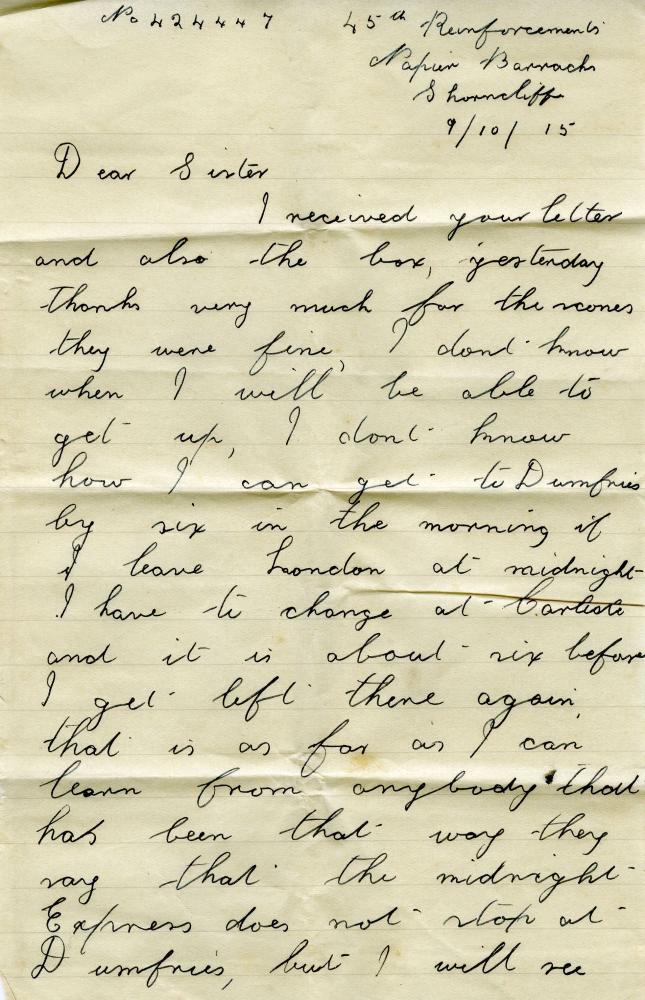 No 424447 45th Reinforcements
Napier Barracks
Shorncliffe
9/10/15
Dear Sister
I received your letter
and also the box, yesterday
thanks very much for the scones
they were fine, I dont know
when I will be able to
get up, I dont know
how I can get to Dumfries
by six in the morning if
I leave London at midnight
I have to change at Carlisle
and it is about six before
I get left there again,
that is as far as I can
learn from anybody that
has been that way they
say that the midnight
Express does not stop at
Dumfries, but I will see